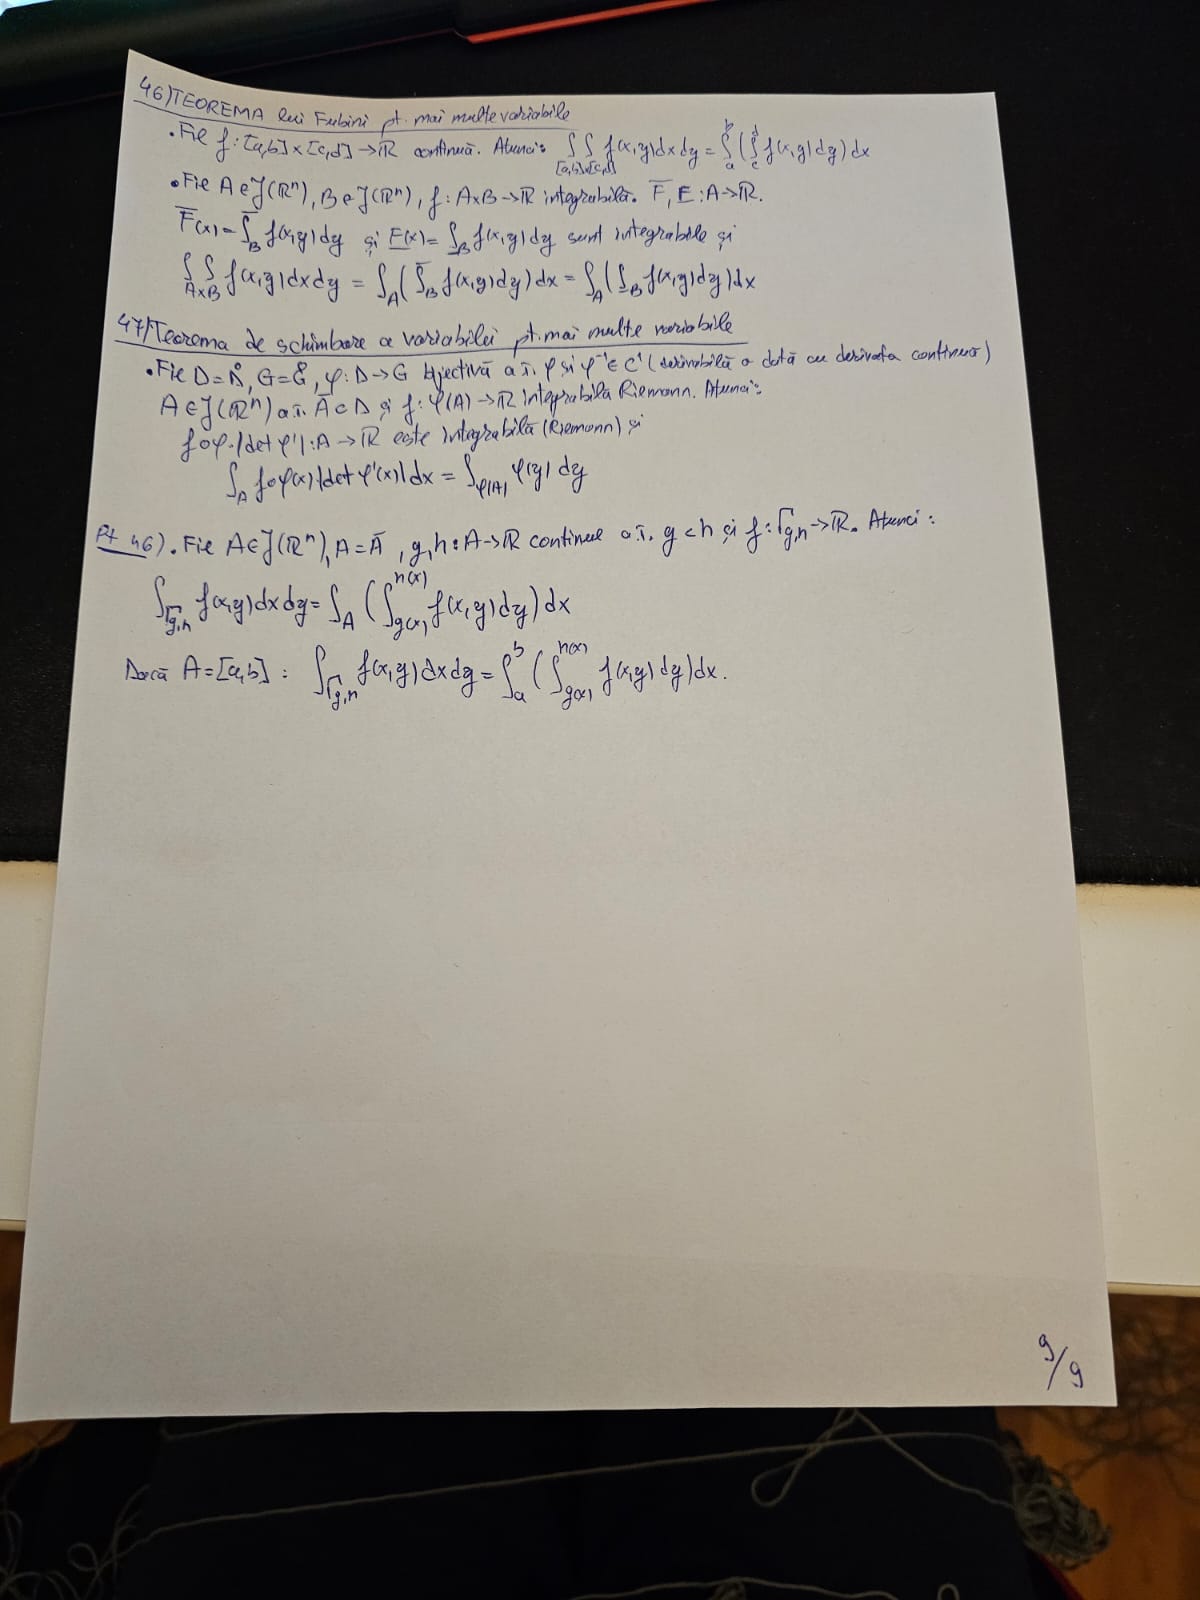 46) TEOREMA lui Fubini pt. mai multe variabile
• Fie f: [a,b]×[c,d] → ℝ continuă. Atunci: ∫∫_{[a,b]×[c,d]} f(x,y)dxdy = ∫_a^b (∫_c^d f(x,y)dy)dx
• Fie A∈J(ℝⁿ), B∈J(ℝⁿ), f: A×B→ℝ integrabilă. F̅, F̲: A→ℝ.
F̅(x) = ∫̅_B f(x,y)dy și F̲(x) = ∫̲_B f(x,y)dy sunt integrabile și
∫∫_{A×B} f(x,y)dxdy = ∫_A (∫̅_B f(x,y)dy)dx = ∫_A (∫̲_B f(x,y)dy)dx
47) Teorema de schimbare a variabilei pt. mai multe variabile
• Fie D=D̊, G=G̊, φ: D→G bijectivă a.î. φ și φ⁻¹∈C¹ (derivabilă o dată cu derivata continuă)
A∈J(ℝⁿ) a.î. A̅⊂D și f: φ(A)→ℝ integrabilă Riemann. Atunci:
f∘φ·|det φ'|: A→ℝ este integrabilă (Riemann) și
∫_A f∘φ(x)|det φ'(x)|dx = ∫_{φ(A)} φ(y)dy
Pt 46). Fie A∈J(ℝⁿ), A=A̅, g,h: A→ℝ continue a.î. g<h și f: Γ_{g,h}→ℝ. Atunci:
∫_{Γ_{g,h}} f(x,y)dxdy = ∫_A (∫_{g(x)}^{h(x)} f(x,y)dy)dx
Dacă A=[a,b]: ∫_{Γ_{g,h}} f(x,y)dxdy = ∫_a^b (∫_{g(x)}^{h(x)} f(x,y)dy)dx.
9/9